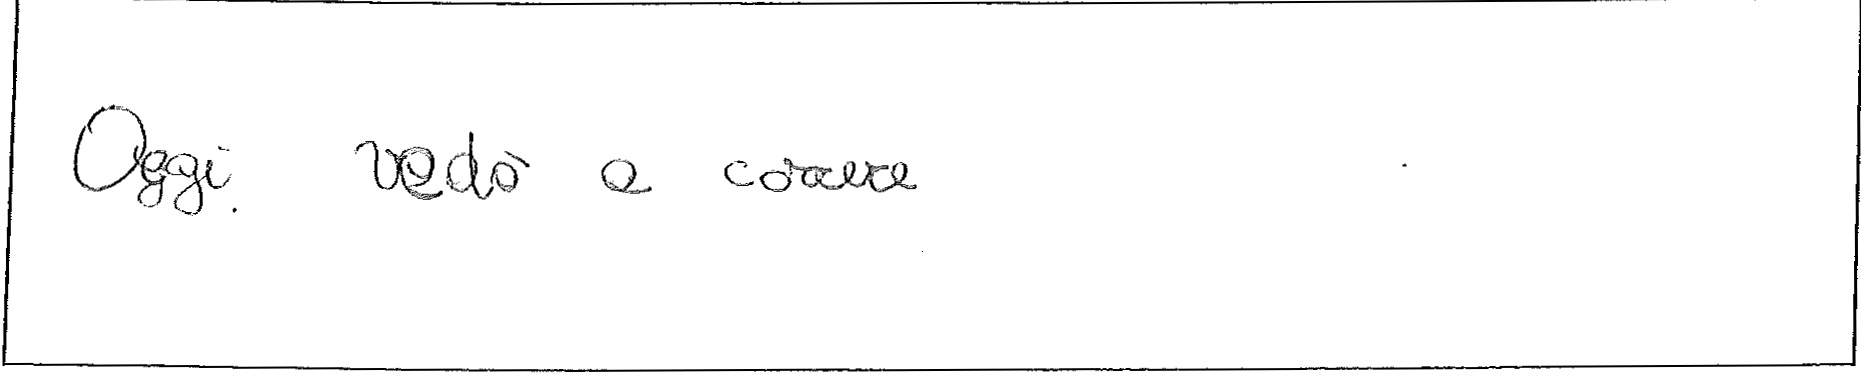 Oggi. vedò a correre